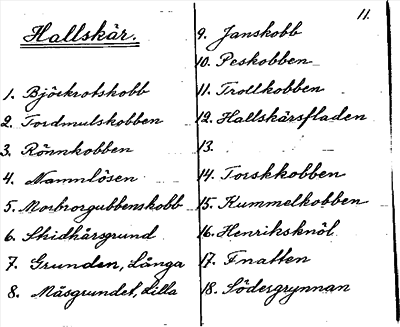 Hallskär.
1. Björkrotskobb
2. Tordmulskobben
3. Rönnkobben
4. Namnlösen
5. Morbrorgubbenskobb
6. Skidhärsgrund
7. Grunden, Långa
8. Måsgrundet, Lilla
11.
9. Janskobb
10. Peskobben
11. Trollkobben
12. Hallskärsfladen
13.
14. Torskkobben
15. Kummelkobben
16. Henriksknöl
17. Fnatten
18. Södergrynnan